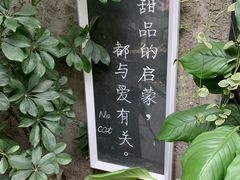 甜品的启蒙，
都与爱有关。
No
cat